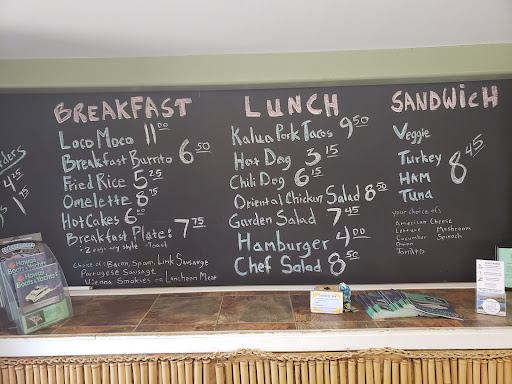 BREAKFAST
Loco Moco 11.00
Breakfast Burrito 6.50
Fried Rice 5.25
Omelette 8.75
Hot Cakes 6.00
Breakfast Plate: 7.75
-2 eggs any style -Toast
Choice of: Bacon, Spam, Link Sausange
Portugese Sausage
Vienna Smokies or Luncheon Meat
LUNCH
Kalua Pork Tacos 9.50
Hot Dog 3.15
Chili Dog 6.15
Oriental Chicken Salad 8.50
Garden Salad 7.45
Hamburger 4.00
Chef Salad 8.50
SANDWICH
Veggie
Turkey 8.45
HAM
Tuna
your choice of:
American Cheese
Lettuce Mushroom
Cucumber Spinach
Onion
TOMATO
ders
4.25
Hawaii
Boats & Yachts